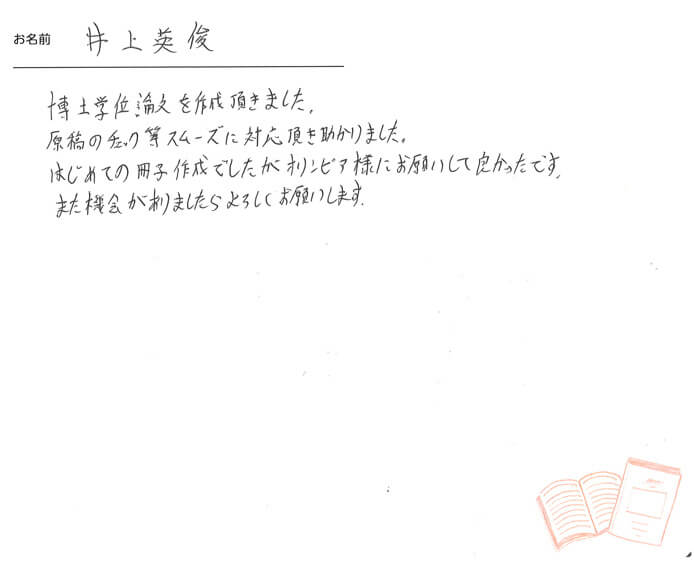 お名前 井上英俊
博士学位論文を作成頂きました。
原稿のチェック等スムーズに対応頂き助かりました。
はじめての冊子作成でしたがオリンピア様にお願いして良かったです。
また機会がありましたらよろしくお願いします。